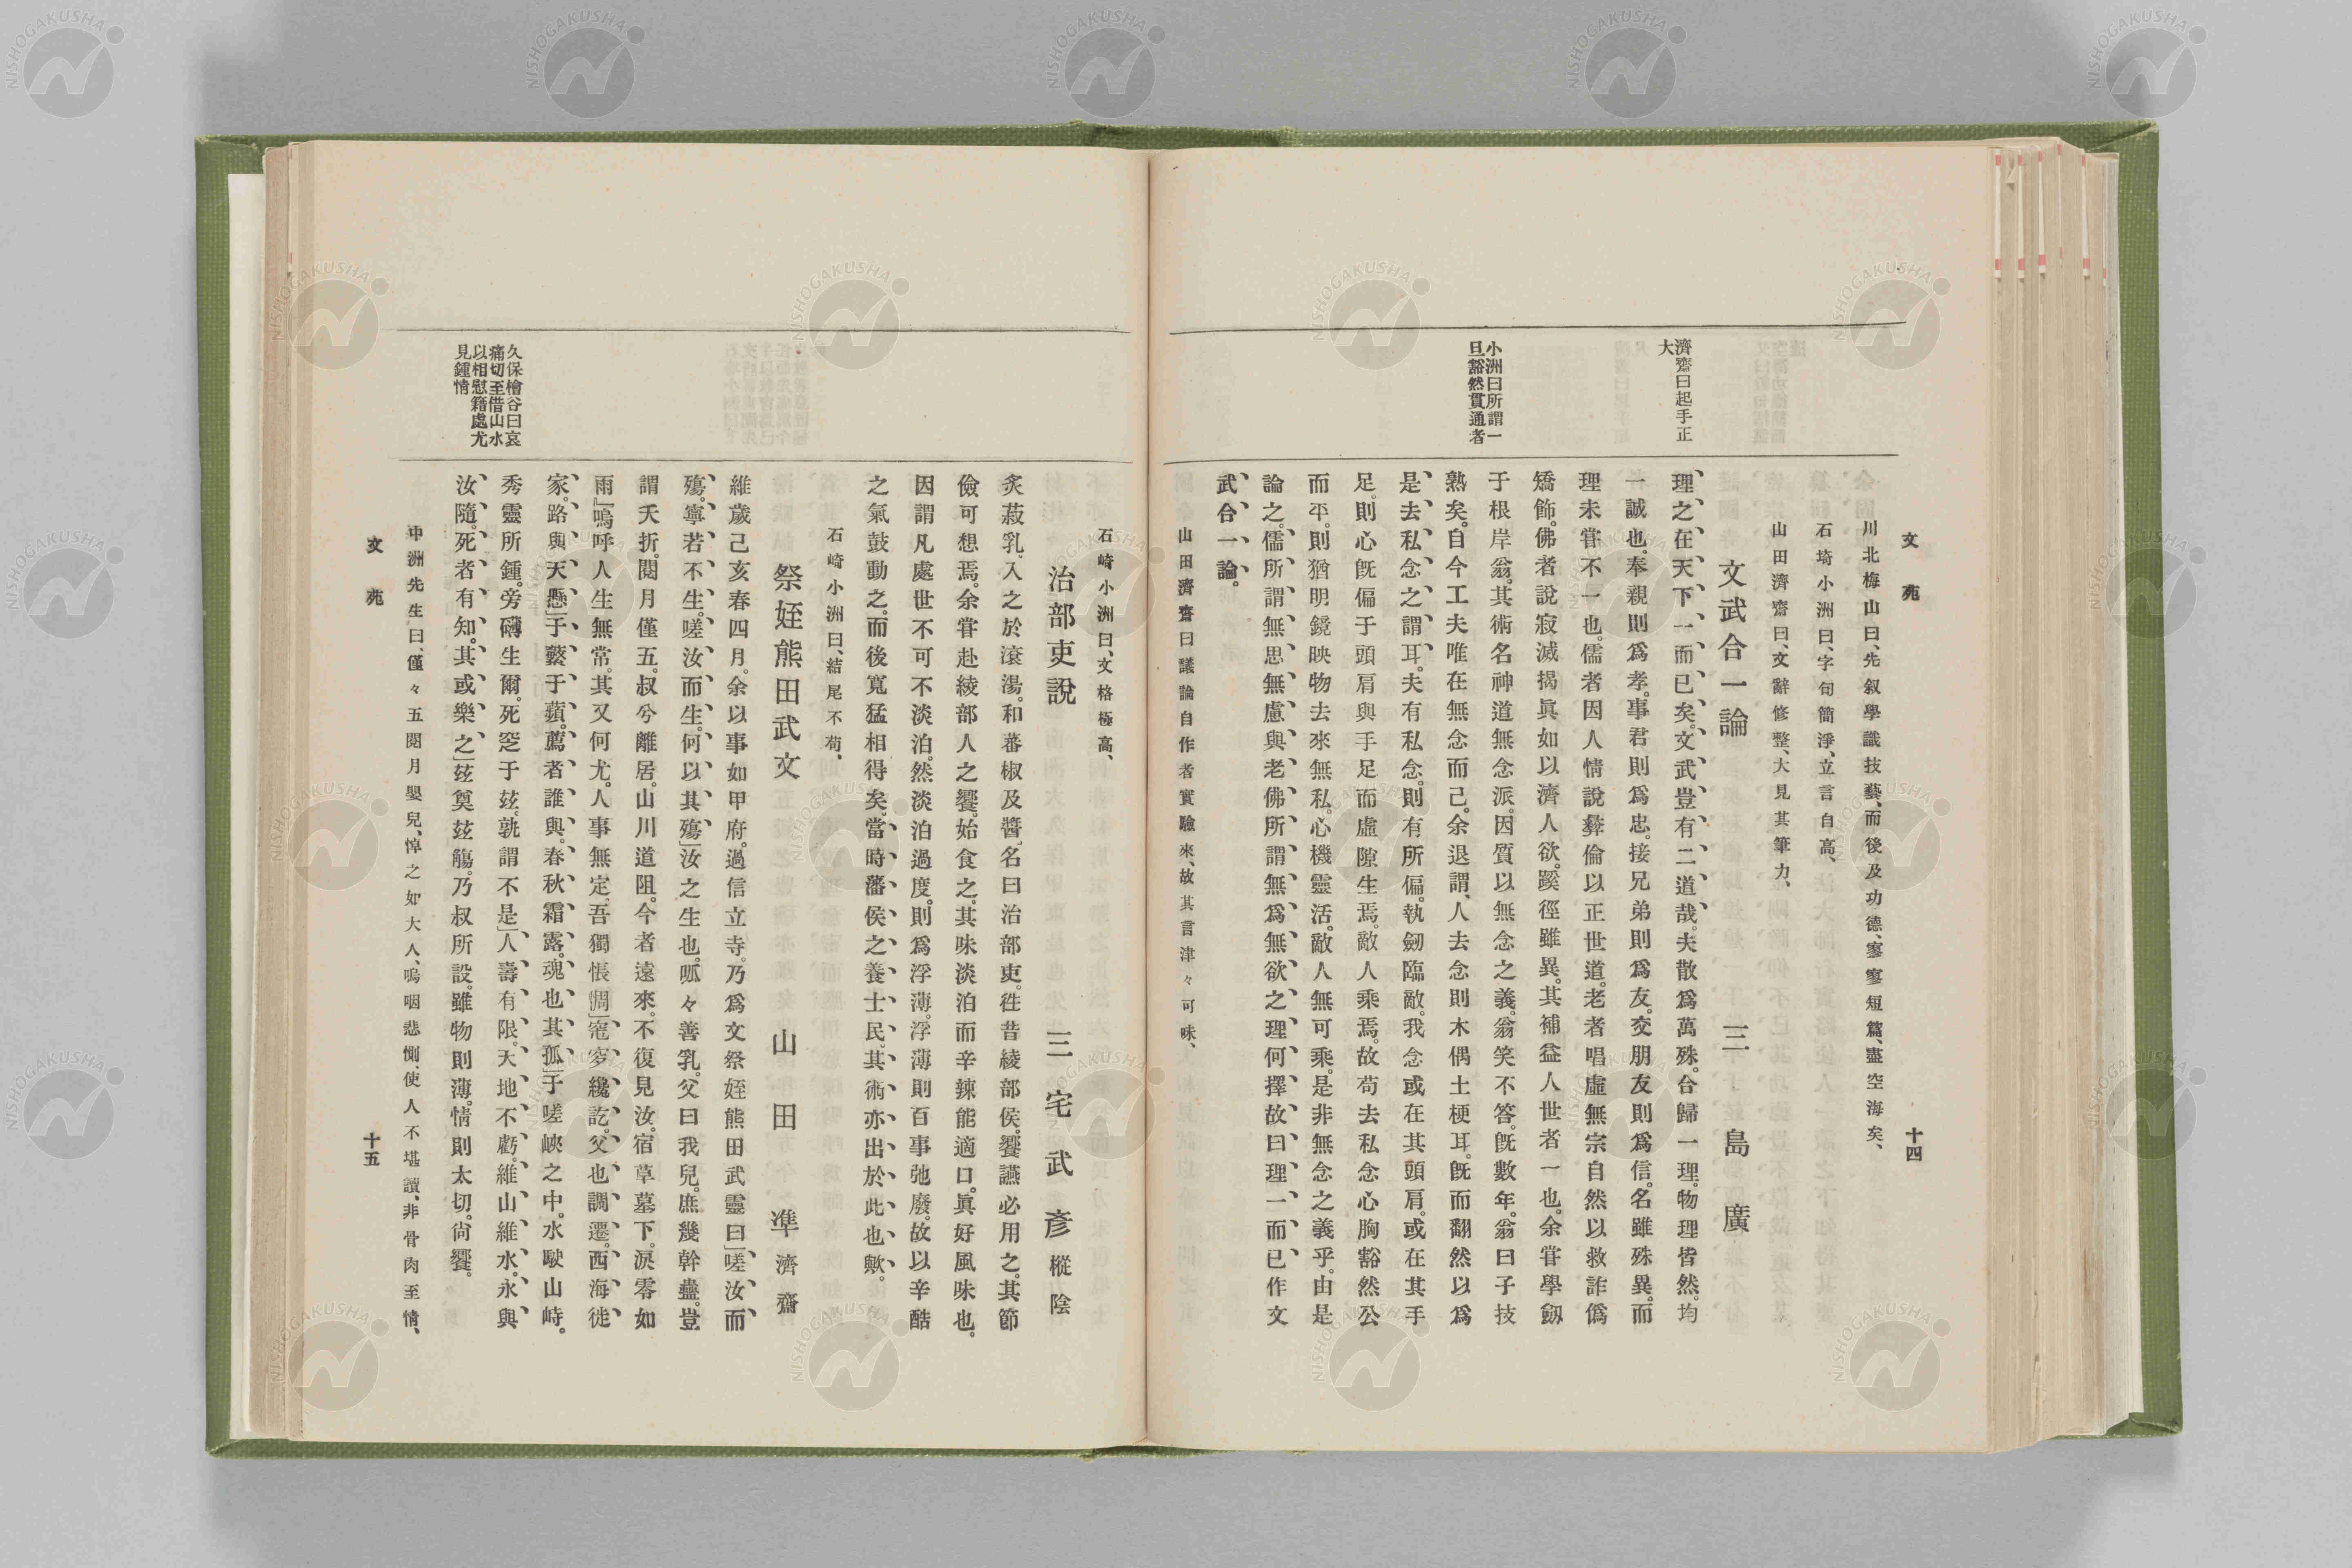 文苑
十四
川北梅山曰、先叙學識技藝、而後及功德、寥寥短篇、盡空海矣、
石埼小洲曰、字句簡淨、立言自高、
山田濟齋曰、文辭修整、大見其筆力、
文武合一論 三島廣
濟齋曰起手正
大
理之在天下、一而已矣。文武豈有二道哉。夫散爲萬殊。合歸一理。物理皆然。均
一誠也。奉親則爲孝。事君則爲忠。接兄弟則爲友。交朋友則爲信。名雖殊異。而
理未甞不一也。儒者因人情說彜倫以正世道。老者唱虛無宗自然以救詐僞
矯飾。佛者說寂滅揭眞如以濟人欲。蹊徑雖異。其補益人世者一也。余甞學劒
于根岸翁。其術名神道無念派。因質以無念之義。翁笑不答。旣數年。翁曰子技
小洲曰所謂一
旦豁然貫通者
熟矣。自今工夫唯在無念而已。余退謂、人去念則木偶土梗耳。旣而翻然以爲
是去私念之謂耳。夫有私念。則有所偏。執劒臨敵。我念或在其頭肩。或在其手
足。則心旣偏于頭肩與手足而虛隙生焉。敵人乘焉。故苟去私念心胸豁然公
而平。則猶明鏡映物去來無私。心機靈活。敵人無可乘。是非無念之義乎。由是
論之。儒所謂無思無慮與老佛所謂無爲無欲之理何擇故曰理一而已作文
武合一論。
山田濟齋曰議論自作者實驗來、故其言津々可味、
石崎小洲曰、文格極高、
治部吏說 三宅武彥 樅陰
炙菽乳。入之於滾湯。和蕃椒及醬。名曰治部吏。徃昔綾部侯。饗讌必用之。其節
儉可想焉。余甞赴綾部人之饗。始食之。其味淡泊而辛辣能適口。眞好風味也。
因謂凡處世不可不淡泊。然淡泊過度。則爲浮薄。浮薄則百事弛廢。故以辛酷
之氣鼓動之。而後寬猛相得矣。當時藩侯之養士民。其術亦出於此也歟。
石崎小洲曰、結尾不苟、
祭姪熊田武文 山田準 濟齋
維歲己亥春四月。余以事如甲府。過信立寺。乃爲文祭姪熊田武靈曰」嗟汝而
殤。寧若不生。嗟汝而生。何以其殤」汝之生也。呱々善乳。父曰我兒。庶幾幹蠱。豈
謂夭折。閱月僅五。叔兮離居。山川道阻。今者遠來。不復見汝。宿草墓下。淚零如
雨」嗚呼人生無常。其又何尤。人事無定。吾獨悵惆」窀穸纔訖。父也調遷。西海徙
家。路與天懸」于蘩于蘋。薦者誰與。春秋霜露。魂也其孤」于嗟峽之中。水駛山峙。
秀靈所鍾。旁礴生爾。死窆于玆。孰謂不是」人壽有限。天地不虧。維山維水。永與
久保檜谷曰哀
痛切至借山水
以相慰籍處尤
見鍾情
汝隨。死者有知。其或樂之」玆奠玆觴。乃叔所設。雖物則薄。情則太切。尙饗。
中洲先生曰、僅々五閱月嬰兒、悼之如大人、嗚咽悲惻、使人不堪讀、非骨肉至情、
文苑
十五